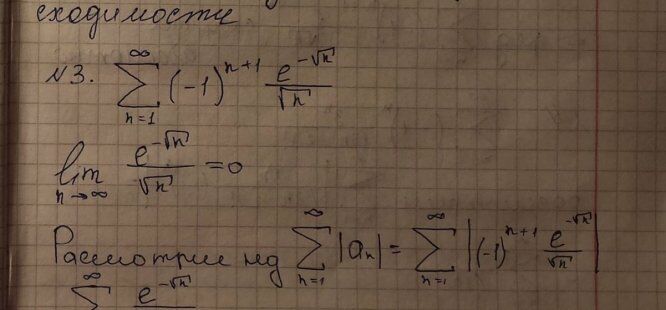 сходимости
№3. \sum_{n=1}^{\infty} (-1)^{n+1} \frac{e^{-\sqrt{n}}}{\sqrt{n}}
\lim_{n \to \infty} \frac{e^{-\sqrt{n}}}{\sqrt{n}} = 0
Рассмотрим ряд \sum_{n=1}^{\infty} |a_n| = \sum_{n=1}^{\infty} \left| (-1)^{n+1} \frac{e^{-\sqrt{n}}}{\sqrt{n}} \right|
\sum^{\infty} e^{-\sqrt{n}}